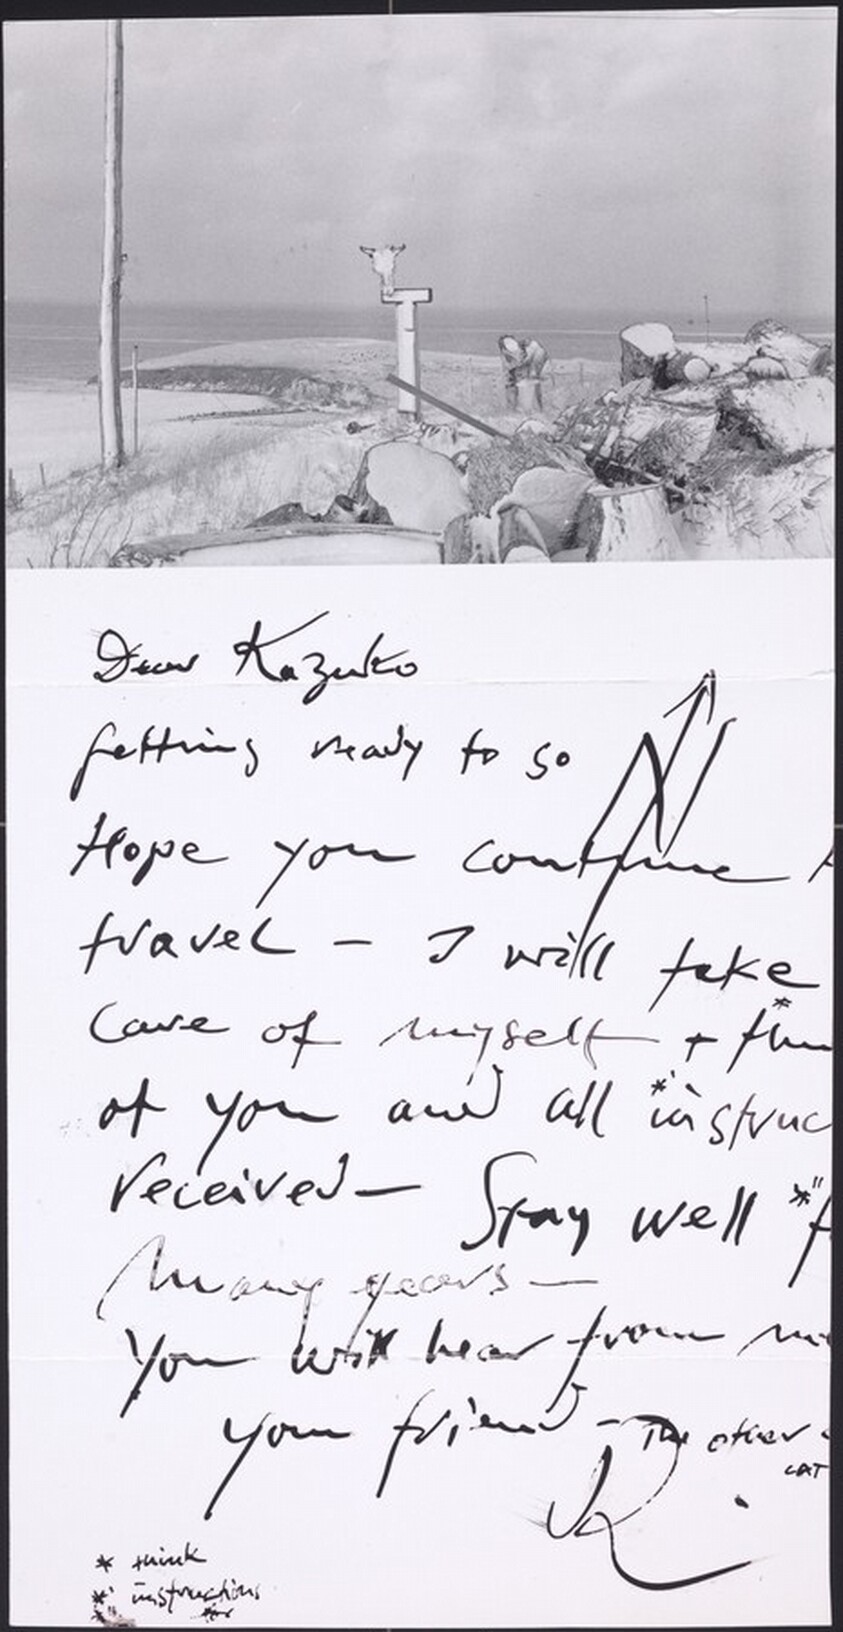 Dear Kazuko
getting ready to go N
Hope you continue
travel - I will take
care of myself + *thin
of you and all *'instruc
received - Stay well *"f
many years -
You will hear from m
your friend - The other
CAT
* think
*' instructions
*" for